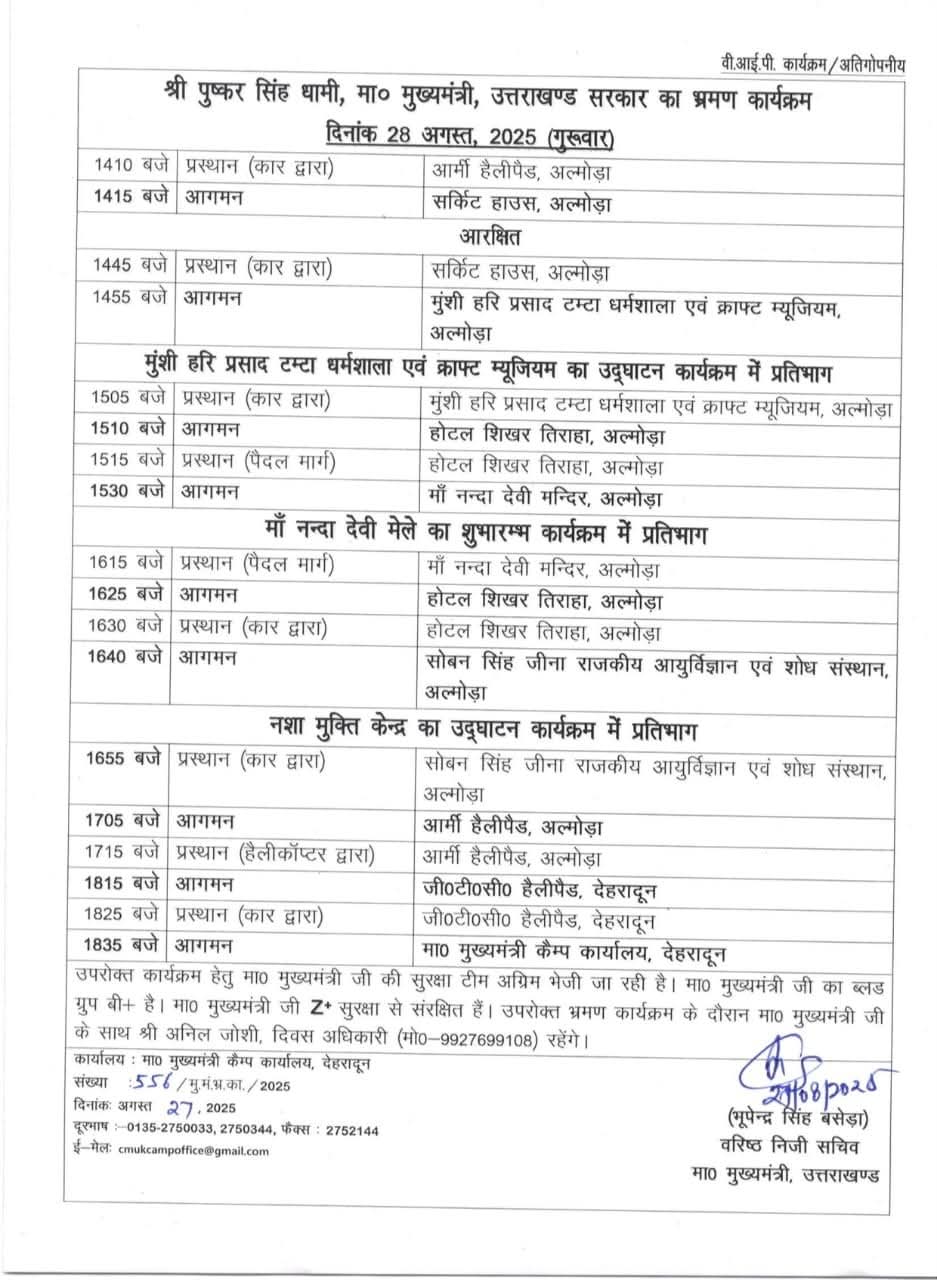 वी.आई.पी. कार्यक्रम/अतिगोपनीय
श्री पुष्कर सिंह धामी, मा० मुख्यमंत्री, उत्तराखण्ड सरकार का भ्रमण कार्यक्रम
दिनांक 28 अगस्त, 2025 (गुरूवार)
1410 बजे प्रस्थान (कार द्वारा) आर्मी हैलीपैड, अल्मोड़ा
1415 बजे आगमन सर्किट हाउस, अल्मोड़ा
आरक्षित
1445 बजे प्रस्थान (कार द्वारा) सर्किट हाउस, अल्मोड़ा
1455 बजे आगमन मुंशी हरि प्रसाद टम्टा धर्मशाला एवं क्राफ्ट म्यूजियम,
अल्मोड़ा
मुंशी हरि प्रसाद टम्टा धर्मशाला एवं क्राफ्ट म्यूजियम का उद्घाटन कार्यक्रम में प्रतिभाग
1505 बजे प्रस्थान (कार द्वारा) मुंशी हरि प्रसाद टम्टा धर्मशाला एवं क्राफ्ट म्यूजियम, अल्मोड़ा
1510 बजे आगमन होटल शिखर तिराहा, अल्मोड़ा
1515 बजे प्रस्थान (पैदल मार्ग) होटल शिखर तिराहा, अल्मोड़ा
1530 बजे आगमन माँ नन्दा देवी मन्दिर, अल्मोड़ा
माँ नन्दा देवी मेले का शुभारम्भ कार्यक्रम में प्रतिभाग
1615 बजे प्रस्थान (पैदल मार्ग) माँ नन्दा देवी मन्दिर, अल्मोड़ा
1625 बजे आगमन होटल शिखर तिराहा, अल्मोड़ा
1630 बजे प्रस्थान (कार द्वारा) होटल शिखर तिराहा, अल्मोड़ा
1640 बजे आगमन सोबन सिंह जीना राजकीय आयुर्विज्ञान एवं शोध संस्थान,
अल्मोड़ा
नशा मुक्ति केन्द्र का उद्घाटन कार्यक्रम में प्रतिभाग
1655 बजे प्रस्थान (कार द्वारा) सोबन सिंह जीना राजकीय आयुर्विज्ञान एवं शोध संस्थान,
अल्मोड़ा
1705 बजे आगमन आर्मी हैलीपैड, अल्मोड़ा
1715 बजे प्रस्थान (हैलीकॉप्टर द्वारा) आर्मी हैलीपैड, अल्मोड़ा
1815 बजे आगमन जी0टी0सी0 हैलीपैड, देहरादून
1825 बजे प्रस्थान (कार द्वारा) जी0टी0सी0 हैलीपैड, देहरादून
1835 बजे आगमन मा0 मुख्यमंत्री कैम्प कार्यालय, देहरादून
उपरोक्त कार्यक्रम हेतु मा0 मुख्यमंत्री जी की सुरक्षा टीम अग्रिम भेजी जा रही है। मा0 मुख्यमंत्री जी का ब्लड
ग्रुप बी+ है। मा0 मुख्यमंत्री जी Z+ सुरक्षा से संरक्षित हैं। उपरोक्त भ्रमण कार्यक्रम के दौरान मा0 मुख्यमंत्री जी
के साथ श्री अनिल जोशी, दिवस अधिकारी (मो0-9927699108) रहेंगे।
कार्यालय : मा0 मुख्यमंत्री कैम्प कार्यालय, देहरादून
संख्या :556/मु.मं.भ्र.का./2025
दिनांकः अगस्त 27, 2025
दूरभाष :-0135-2750033, 2750344, फैक्स : 2752144
ई-मेलः cmukcampoffice@gmail.com
(भूपेन्द्र सिंह बसेड़ा)
वरिष्ठ निजी सचिव
मा0 मुख्यमंत्री, उत्तराखण्ड